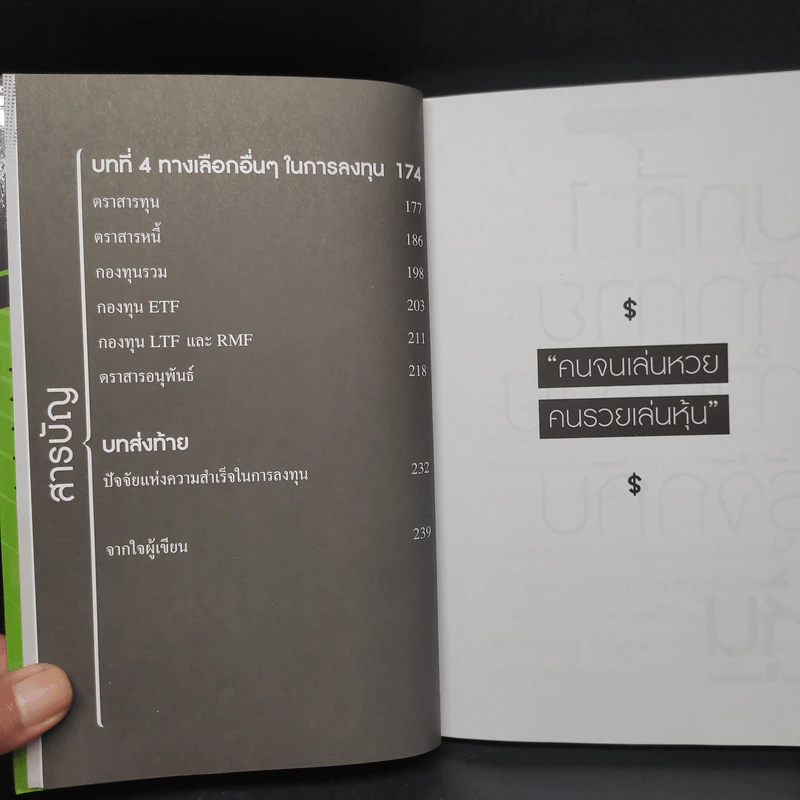 สารบัญ
บทที่ 4 ทางเลือกอื่นๆ ในการลงทุน 174
ตราสารทุน 177
ตราสารหนี้ 186
กองทุนรวม 198
กองทุน ETF 203
กองทุน LTF และ RMF 211
ตราสารอนุพันธ์ 218
บทส่งท้าย
ปัจจัยแห่งความสำเร็จในการลงทุน 232
จากใจผู้เขียน 239
$
“คนจนเล่นหวย
คนรวยเล่นหุ้น”
$